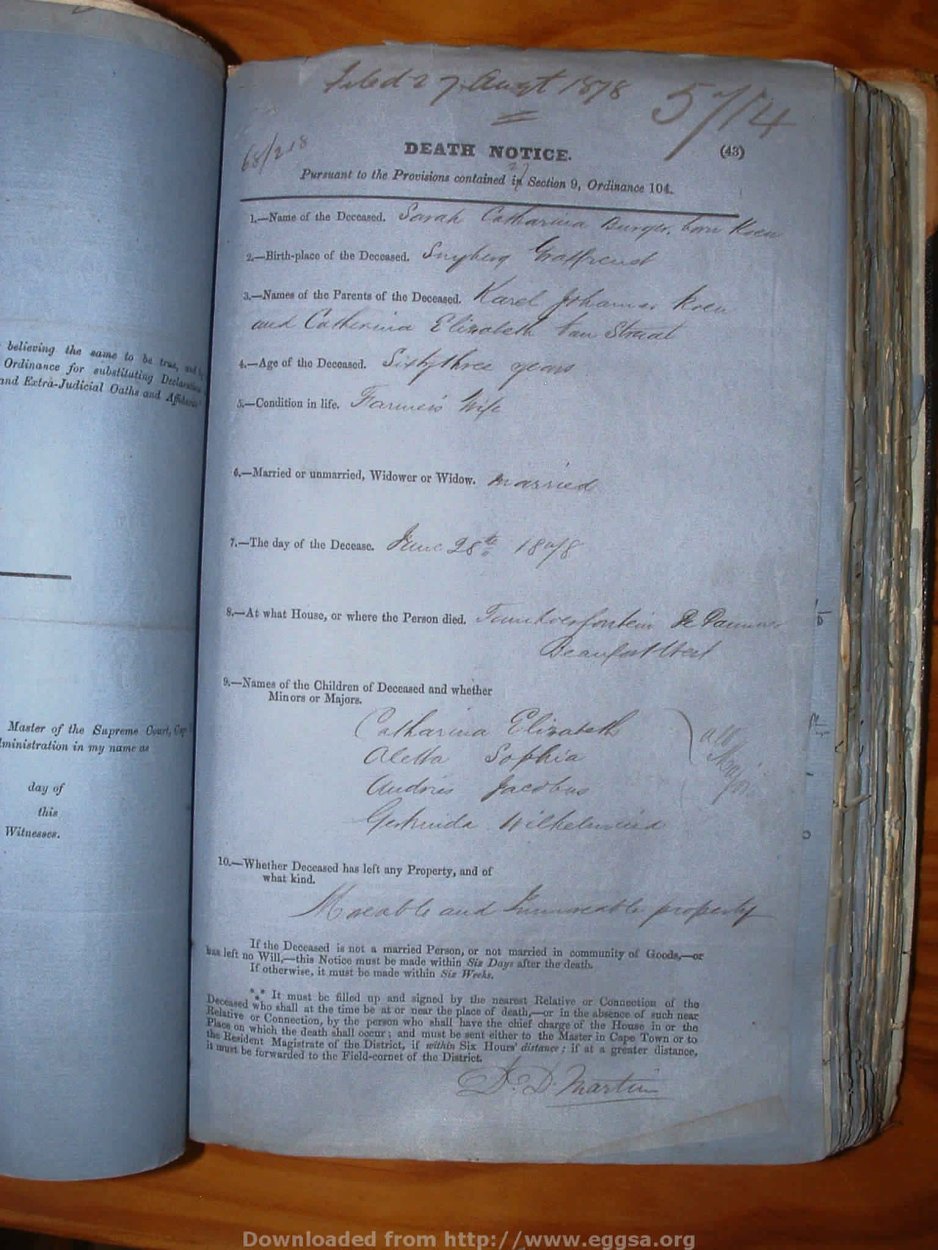 believing the same to be true, and
Ordinance for substituting
and Extra-Judicial Oaths and
Master of the Supreme Court,
in my name as
day of
this
Witnesses.
Filed 27 August 1878 5714
68/218
DEATH NOTICE. (43)
Pursuant to the Provisions contained in Section 9, Ordinance 104.
1.—Name of the Deceased. Sarah Catharina Burger, born Koen
2.—Birth-place of the Deceased.
3.—Names of the Parents of the Deceased. Karel Johannes Koen
and Catherina Elizabeth van Straat
4.—Age of the Deceased. Sixtythree years
5.—Condition in life. Farmer's Wife
6.—Married or unmarried, Widower or Widow. Married
7.—The day of the Decease. June 28th 1878
8.—At what House, or where the Person died.
Beaufort West
9.—Names of the Children of Deceased and whether
Minors or Majors.
Catharina Elizabeth
Aletta Sophia
Andries Jacobus
Gertruida Wilhelmina
all
Major
10.—Whether Deceased has left any Property, and of
what kind.
Moveable and Immoveable property
If the Deceased is not a married Person, or not married in community of Goods,—or
has left no Will,—this Notice must be made within Six Days after the death.
If otherwise, it must be made within Six Weeks.
*** It must be filled up and signed by the nearest Relative or Connection of the
Deceased who shall at the time be at or near the place of death,—or in the absence of such near
Relative or Connection, by the person who shall have the chief charge of the House in or the
Place on which the death shall occur; and must be sent either to the Master in Cape Town or to
the Resident Magistrate of the District, if within Six Hours' distance; if at a greater distance,
it must be forwarded to the Field-cornet of the District.
D. D. Martin
Downloaded from http://www.eggsa.org